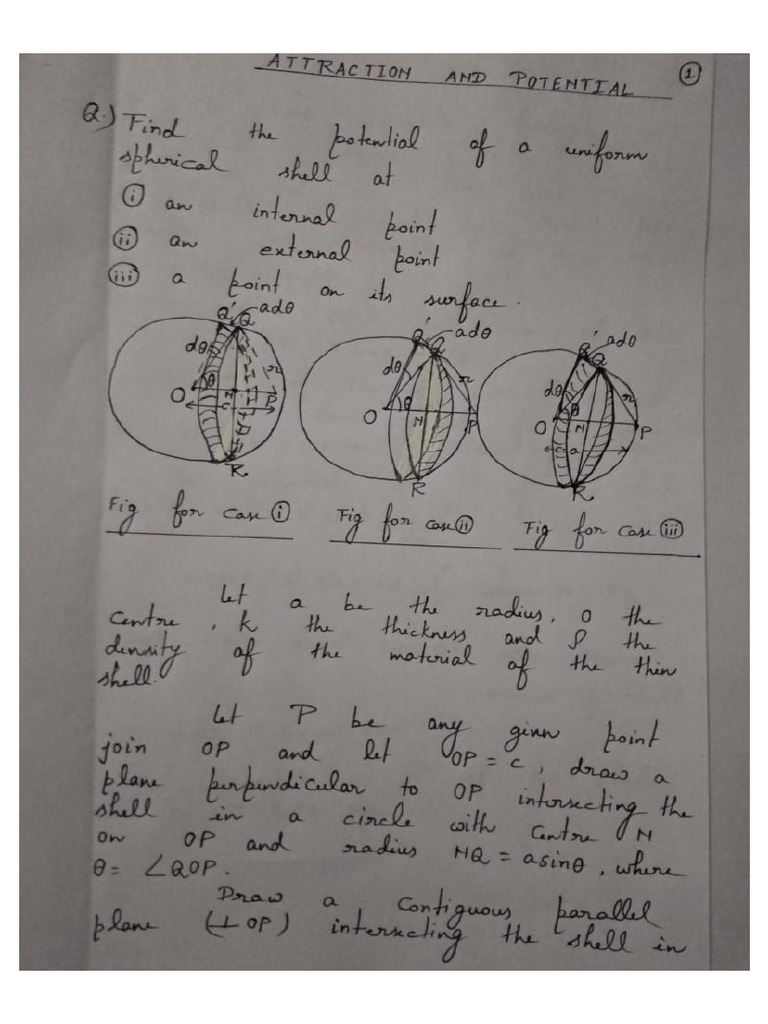 ATTRACTION AND POTENTIAL ①
Q.) Find the potential of a uniform
spherical shell at
(i) an internal point
(ii) an external point
(iii) a point on its surface.
Q' adθ Q dθ r O θ N c P R
Q' adθ Q dθ r O θ N P R
Q' adθ Q dθ r O θ N a P R
Fig for case (i) Fig for case (ii) Fig for case (iii)
Let a be the radius, O the
Centre, k the thickness and ρ the
density of the material of the thin
shell.
Let P be any given point
join OP and let OP = c, draw a
plane perpendicular to OP intersecting the
shell in a circle with Centre N
on OP and radius NQ = a sinθ, where
θ = ∠QOP.
Draw a Contiguous parallel
plane (⊥ OP) intersecting the shell in